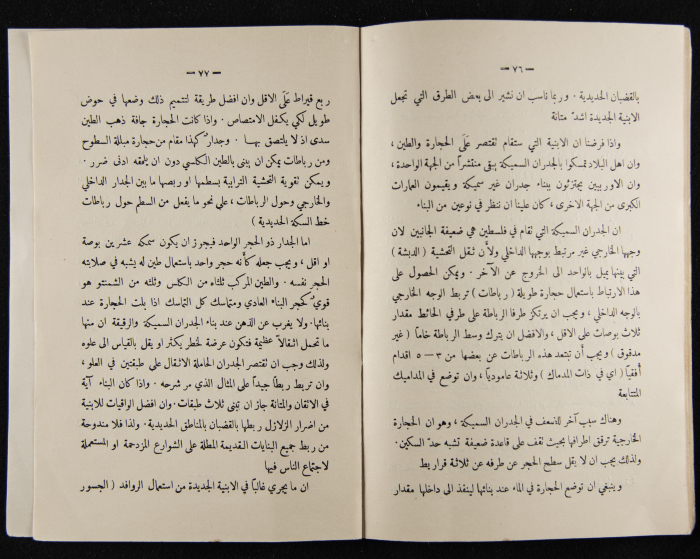 — ٧٦ —
بالقضبان الحديدية . وربما ناسب ان نشير الى بعض الطرق التي تجعل
الابنية الجديدة اشدّ متانة
واذا فرضنا ان الابنية التي ستقام تقتصر عَلَى الحجارة والطين ،
وان اهل البلاد تمسكوا بالجدران السميكة يبقى منقشراً من الجهة الواحدة ،
وان الاوربيين يجتزئون ببناء جدران غير سميكة ويقيمون العمارات
الكبرى من الجهة الاخرى ، كان علينا ان ننظر في نوعين من البناء
ان الجدران السميكة التي تقام في فلسطين هي ضعيفة الجانبين لان
وجهها الخارجي غير مرتبط بوجهها الداخلي ولأن ثقل التحشية ( الدبشة )
التي بينها يميل بالواحد الى الخروج عن الآخر . ويمكن الحصول على
هذا الارتباط باستعمال حجارة طويلة ( رباطات ) تربط الوجه الخارجي
بالوجه الداخلي ، ويجب ان يرتكز طرفا الرباطة على طرفي الحائط مقدار
ثلاث بوصات على الاقل ، والافضل ان يترك وسط الرباطة خاماً ( غير
مدقوق ) ويجب أن تبتعد هذه الرباطات عن بعضها من ٣ — ٥ اقدام
أفقياً ( اي في ذات المدماك ) وثلاثة عامودياً ، وان توضع في المداميك
المتتابعة
وهناك سبب آخر للضعف في الجدران السميكة ، وهو ان الحجارة
الخارجية ترقق اطرافها بحيث تقف على قاعدة ضعيفة تشبه حدّ السكين .
ولذلك يجب ان لا يقل سطيح الحجر عن طرفه عن ثلاثة قراريط
وينبغي ان توضع الحجارة في الماء عند بنائها لينفذ الى داخلها مقدار
— ٧٧ —
ربع قيراط عَلَى الاقل وان افضل طريقة لتتميم ذلك وضعها في حوض
طويل لكي يكفل الامتصاص . واذا كانت الحجارة جافة ذهب الطين
سدى اذ لا يلتصق بها . وجدارٌ كهذا مقام من حجارة مبللة السطوح
ومن رباطات يمكن ان يبنى بالطين الكلسي دون ان يلحقه ادنى ضرر .
ويمكن تقوية التحشية الترابية بسطمها او ربصها ما بين الجدار الداخلي
والخارجي وحول الرباطات ، على نحو ما يفعل من السطم حول رباطات
خط السكة الحديدية )
اما الجدار ذو الحجر الواحد فيجوز ان يكون سمكه عشرين بوصة
او اقل ، ويجب جعله كأنه حجر واحد باستعمال طين له يشبه في صلابته
الحجر نفسه . والطين المركب ثلثاه من الكلس وثلثه من الشمنتو هو
قويٌ كحجر البناء العادي ومتماسك كل التماسك اذا بلت الحجارة عند
بنائها . ولا يغرب عن الذهن عند بناء الجدران السميكة والرقيقة ان منها
ما تحمل اثقالاً عظيمة فتكون عرضة لخطر يكثر او يقل بالقياس الى علوه
ولذلك وجب ان تقتصر الجدران الحاملة الاثقال على طبقتين في العلو ،
وان تربط ربطاً جيداً على المثال الذي مر شرحه . واذا كان البناء آية
في الاتقان والمتانة جاز ان تبنى ثلاث طبقات . وان افضل الواقيات للابنية
من اضرار الزلازل ربطها بالقضبان بالمناطق الحديدية . ولذا فلا مندوحة
من ربط جميع البنايات القديمة المطلة على الشوارع المزدحمة او المستعملة
لاجتماع الناس فيها
ان ما يجري غالباً في الابنية الجديدة من استعمال الروافد ( الجسور